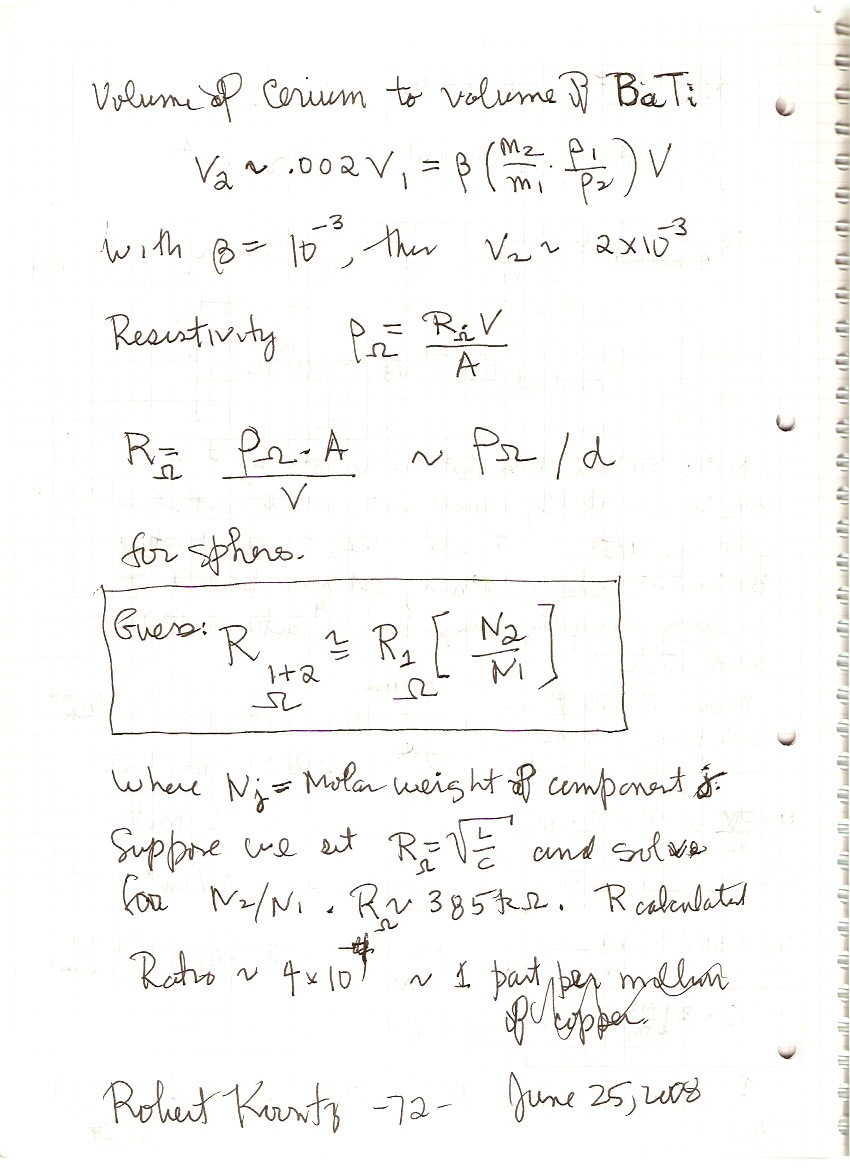 Volume of Cerium to volume of BaTi
V₂ ~ .002 V₁ = β (m₂/m₁ · ρ₁/ρ₂) V
with β = 10⁻³, then V₂ ~ 2×10⁻³
Resistivity ρ_Ω = R_Ω V / A
R_Ω = ρ_Ω · A / V ~ ρ_Ω / d
for sphere.
Guess: R_Ω 1+2 ≅ R_Ω 1 [N₂/N₁]
Where Nj = Molar weight of component j.
Suppose we set R_Ω = √(L/C) and solve
for N₂/N₁. R_Ω ~ 385 kΩ. R calculated
Ratio ~ 4×10 ~ 1 part per million
of copper.
Robert Koontz -72- June 25, 2008